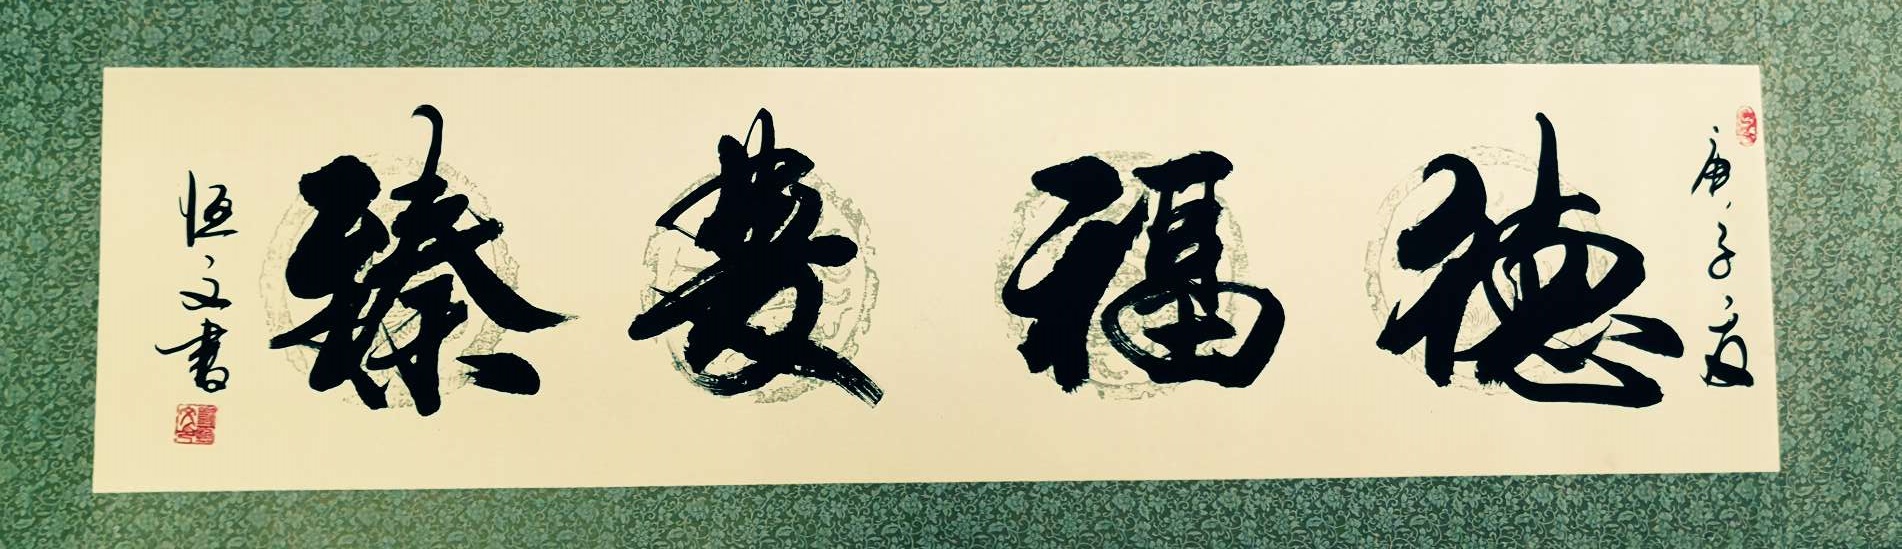 庚子夏
德福雙臻
恒文書